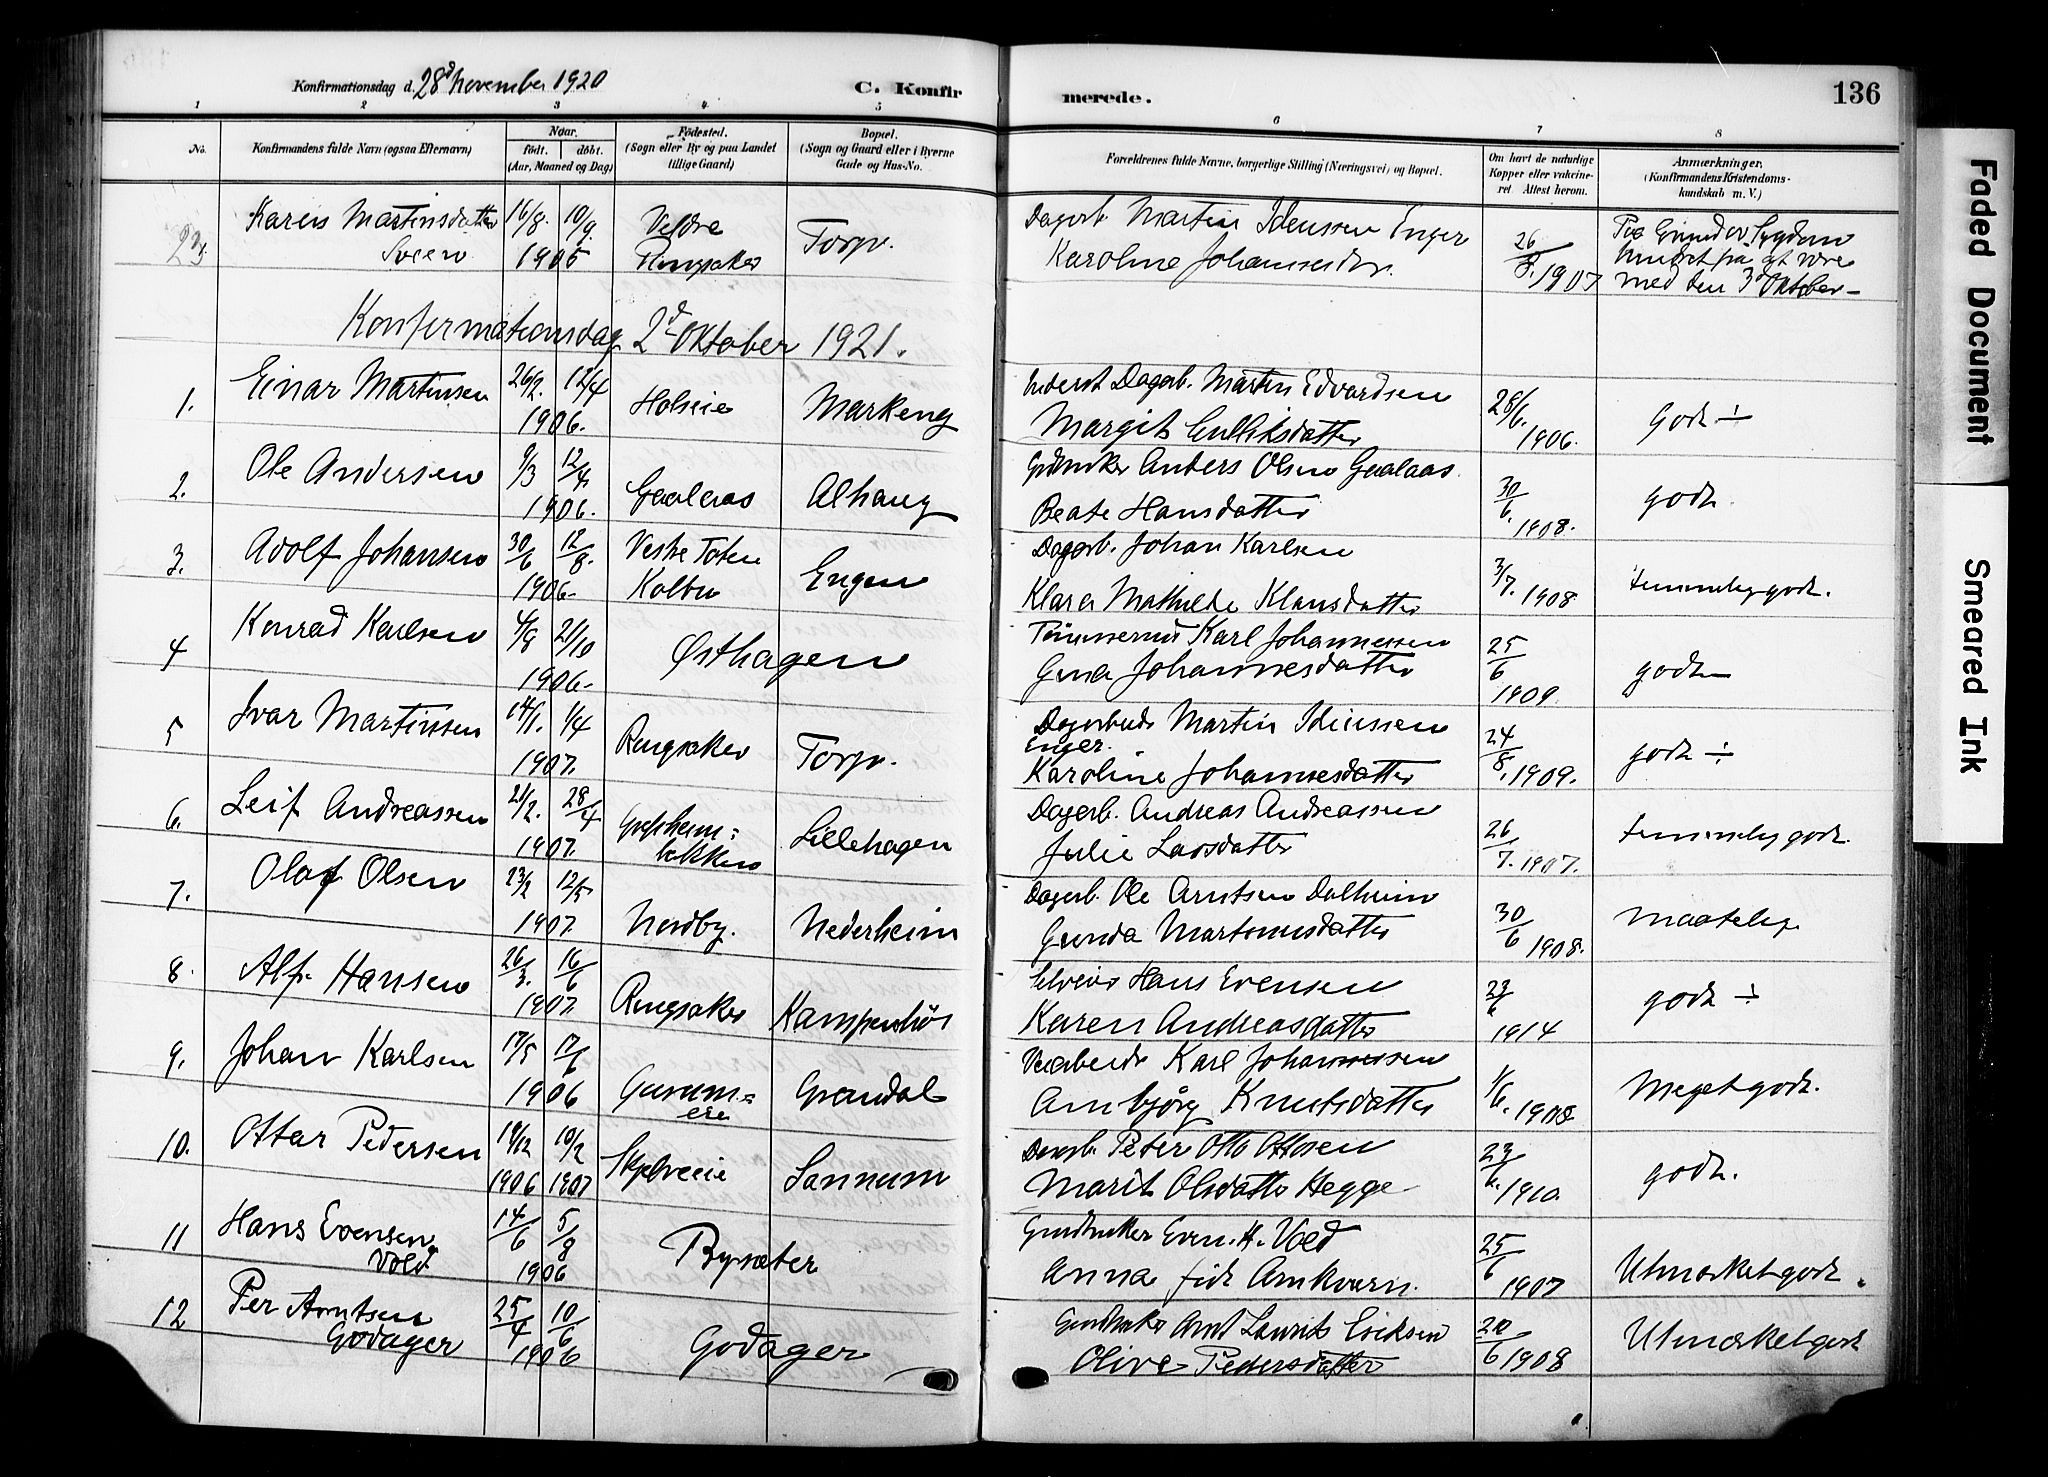 Konfirmationsdag d. 28d November 1920
C. Konfir
merede.
136
1 2 3 4 5 6 7 8
No.
Konfirmandens fulde Navn (ogsaa Efternavn)
Naar.
födt. döbt.
(Aar, Maaned og Dag)
Födested.
(Sogn eller By og paa Landet
tillige Gaard)
Bopæl.
(Sogn og Gaard eller i Byerne
Gade og Hus-No.
Forældrenes fulde Navne, borgerlige Stilling (Næringsvei) og Bopæl.
Om havt de naturlige
Kopper eller vakcine-
ret. Attest herom.
Anmærkninger.
(Konfirmandens Kristendoms-
kundskab m. V.)
23. Karen Martinsdatter 16/8. 10/9. Veldre Torp. Dagarb. Martin Idenssen Enger 26/8. Paa Grund av Sygdom
Sveen 1905 Ringsaker Karoline Johannesdtr. 1907 hindret fra at være
med den 3d Oktober –
Konfirmationsdag 2d Oktober 1921.
1. Einar Martinsen 26/2. 12/4 Holseie Markeng Inderst Dagarb. Martin Edvardsen 28/6. Godt ÷
1906. Margit Gulliksdatter 1906.
2. Ole Andersen 9/3 12/4 Gaalaas Alhaug Gdbruker Anders Olsen Gaalaas 30/6. godt.
1906. Beate Hansdatter 1908.
3. Adolf Johansen 30/6 12/8. Vestre Toten Engen Dagarb. Johan Karlsen 3/7. temmelig godt.
1906. Kolbu Klara Mathilde Klausdatter 1908
4 Konrad Karlsen 4/8 21/10 Østhagen Tømmermd Karl Johannessen 25/6 godt
1906. Gina Johannesdatter 1909.
5 Ivar Martinsen 14/1. 1/4 Ringsaker Torp. Dagarbeide Martin Idenssen 24/8. godt ÷
Enger.
1907. Karoline Johannesdatter 1909.
6. Leif Andreassen 21/2. 28/4 Grefsheim= Lillehagen Dagarb. Andreas Andreassen 26/7. temmelig godt.
1907. løkken Julie Larsdatter 1907.
7. Olaf Olsen 23/2 12/5 Nordby. Nederheim Dagarb. Ole Arntsen Dalheim 30/6 maatelig
1907. Gunda Martinusdatter 1908.
8. Alf Hansen 26/3. 16/6 Ringsaker Kampenhør Selveier Hans Evensen godt ÷
1907. Karen Andreasdatter 1914
9. Johan Karlsen 17/5 17/6 Gurum= Grøndal Karl Johannessen 1/6. Meget godt.
1906 eie Arnbjørg Knutsdatter 1908
10. Ottar Pedersen 19/12 10/2 Skjelveeie Sannum Dagarb. Peter Otto Ottosen godt.
1906 1907 Marit Olsdatter Hegge 1910.
11 Hans Evensen 14/6 5/8 Bysæter Gaardbruker Even H. Vold 25/6 Utmærket godt.
Vold 1906 Anna født Arnkværn. 1907
12 Per Arntsen 25/4 10/6 Godager Gaardbruker Arnt Laurits Eriksen 20/6 Utmærket godt
Godager 1906 Olive Pedersdatter 1908
Faded Document
Smeared Ink